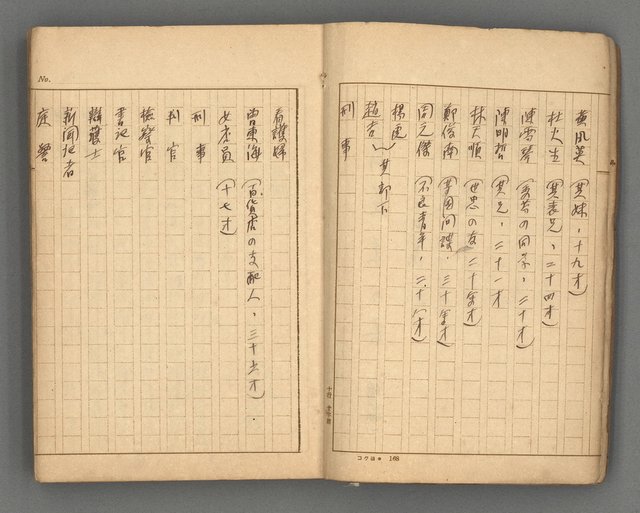 黃鳳英（其妹，十九才）
杜火生（其表兄，二十四才）
陳雪琴（の同学，二十才）
陳明哲（其兄，二十一才）
林天順（世忠の友，二十余才）
鄭俊南（軍用間諜，三十余才）
周元傑（不良青年，二十八才）
楊更
趙吉
其部下
刑事
コクヨ 168
No.
看護婦
曾東海（百貨店の支配人，三十五才）
女店員（十七才）
刑事
判官
檢察官
書記官
辯護士
新聞記者
庭警